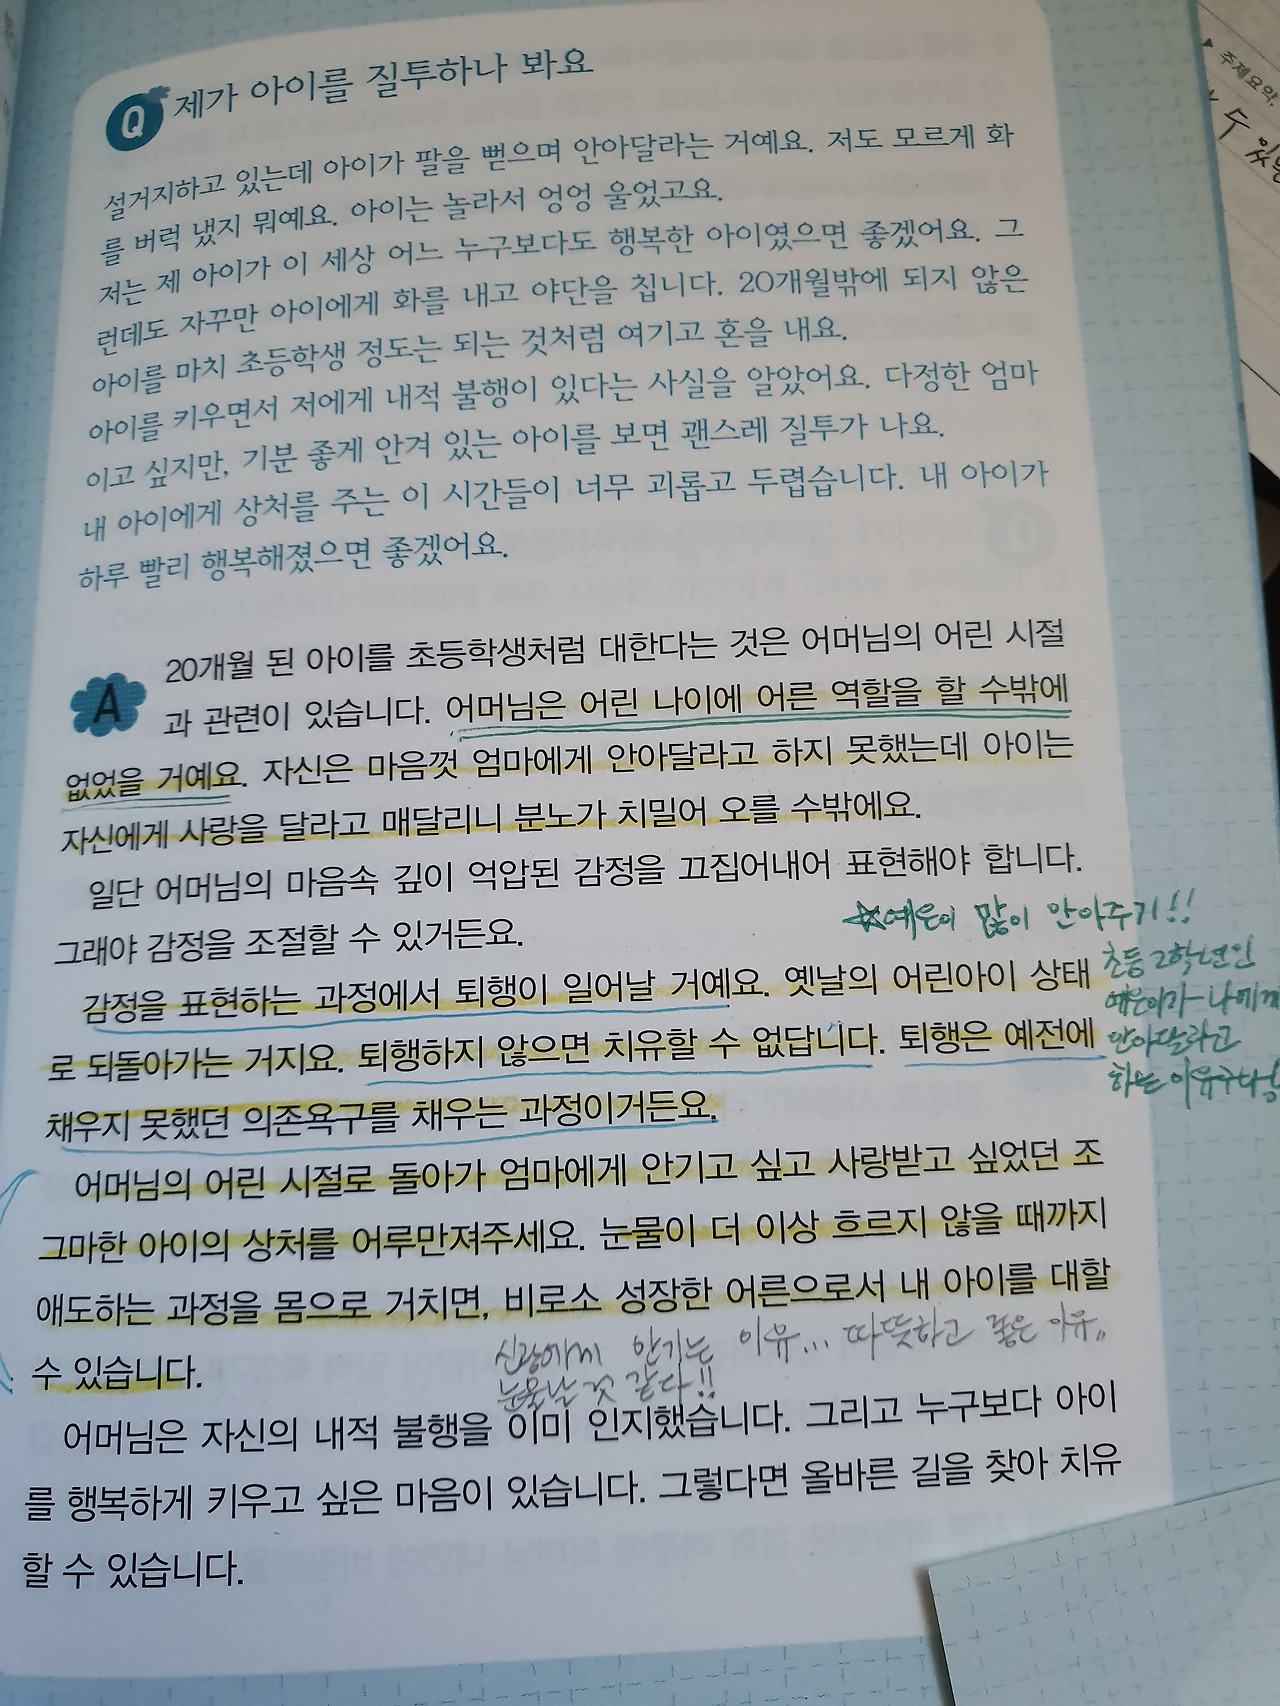 Q 제가 아이를 질투하나 봐요
설거지하고 있는데 아이가 팔을 뻗으며 안아달라는 거예요. 저도 모르게 화
를 버럭 냈지 뭐예요. 아이는 놀라서 엉엉 울었고요.
저는 제 아이가 이 세상 어느 누구보다도 행복한 아이였으면 좋겠어요. 그
런데도 자꾸만 아이에게 화를 내고 야단을 칩니다. 20개월밖에 되지 않은
아이를 마치 초등학생 정도는 되는 것처럼 여기고 혼을 내요.
아이를 키우면서 저에게 내적 불행이 있다는 사실을 알았어요. 다정한 엄마
이고 싶지만, 기분 좋게 안겨 있는 아이를 보면 괜스레 질투가 나요.
내 아이에게 상처를 주는 이 시간들이 너무 괴롭고 두렵습니다. 내 아이가
하루 빨리 행복해졌으면 좋겠어요.
A 20개월 된 아이를 초등학생처럼 대한다는 것은 어머님의 어린 시절
과 관련이 있습니다. 어머님은 어린 나이에 어른 역할을 할 수밖에
없었을 거예요. 자신은 마음껏 엄마에게 안아달라고 하지 못했는데 아이는
자신에게 사랑을 달라고 매달리니 분노가 치밀어 오를 수밖에요.
일단 어머님의 마음속 깊이 억압된 감정을 끄집어내어 표현해야 합니다.
그래야 감정을 조절할 수 있거든요.
☆예은이 많이 안아주기!!
초등 2학년인
예은이가 나에게
안아달라고
하는 이유구나!
감정을 표현하는 과정에서 퇴행이 일어날 거예요. 옛날의 어린아이 상태
로 되돌아가는 거지요. 퇴행하지 않으면 치유할 수 없답니다. 퇴행은 예전에
채우지 못했던 의존욕구를 채우는 과정이거든요.
어머님의 어린 시절로 돌아가 엄마에게 안기고 싶고 사랑받고 싶었던 조
그마한 아이의 상처를 어루만져주세요. 눈물이 더 이상 흐르지 않을 때까지
애도하는 과정을 몸으로 거치면, 비로소 성장한 어른으로서 내 아이를 대할
수 있습니다.
신랑에게 안기는 이유... 따뜻하고 좋은 이유..
눈물날 것 같다!!
어머님은 자신의 내적 불행을 이미 인지했습니다. 그리고 누구보다 아이
를 행복하게 키우고 싶은 마음이 있습니다. 그렇다면 올바른 길을 찾아 치유
할 수 있습니다.
▶ 주제요약,
수 있는